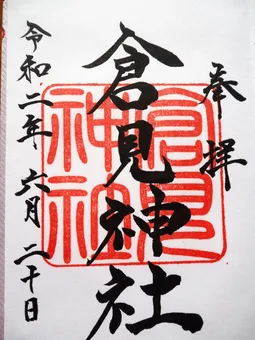 奉拝
倉見神社
倉見神社
令和二年六月二十日